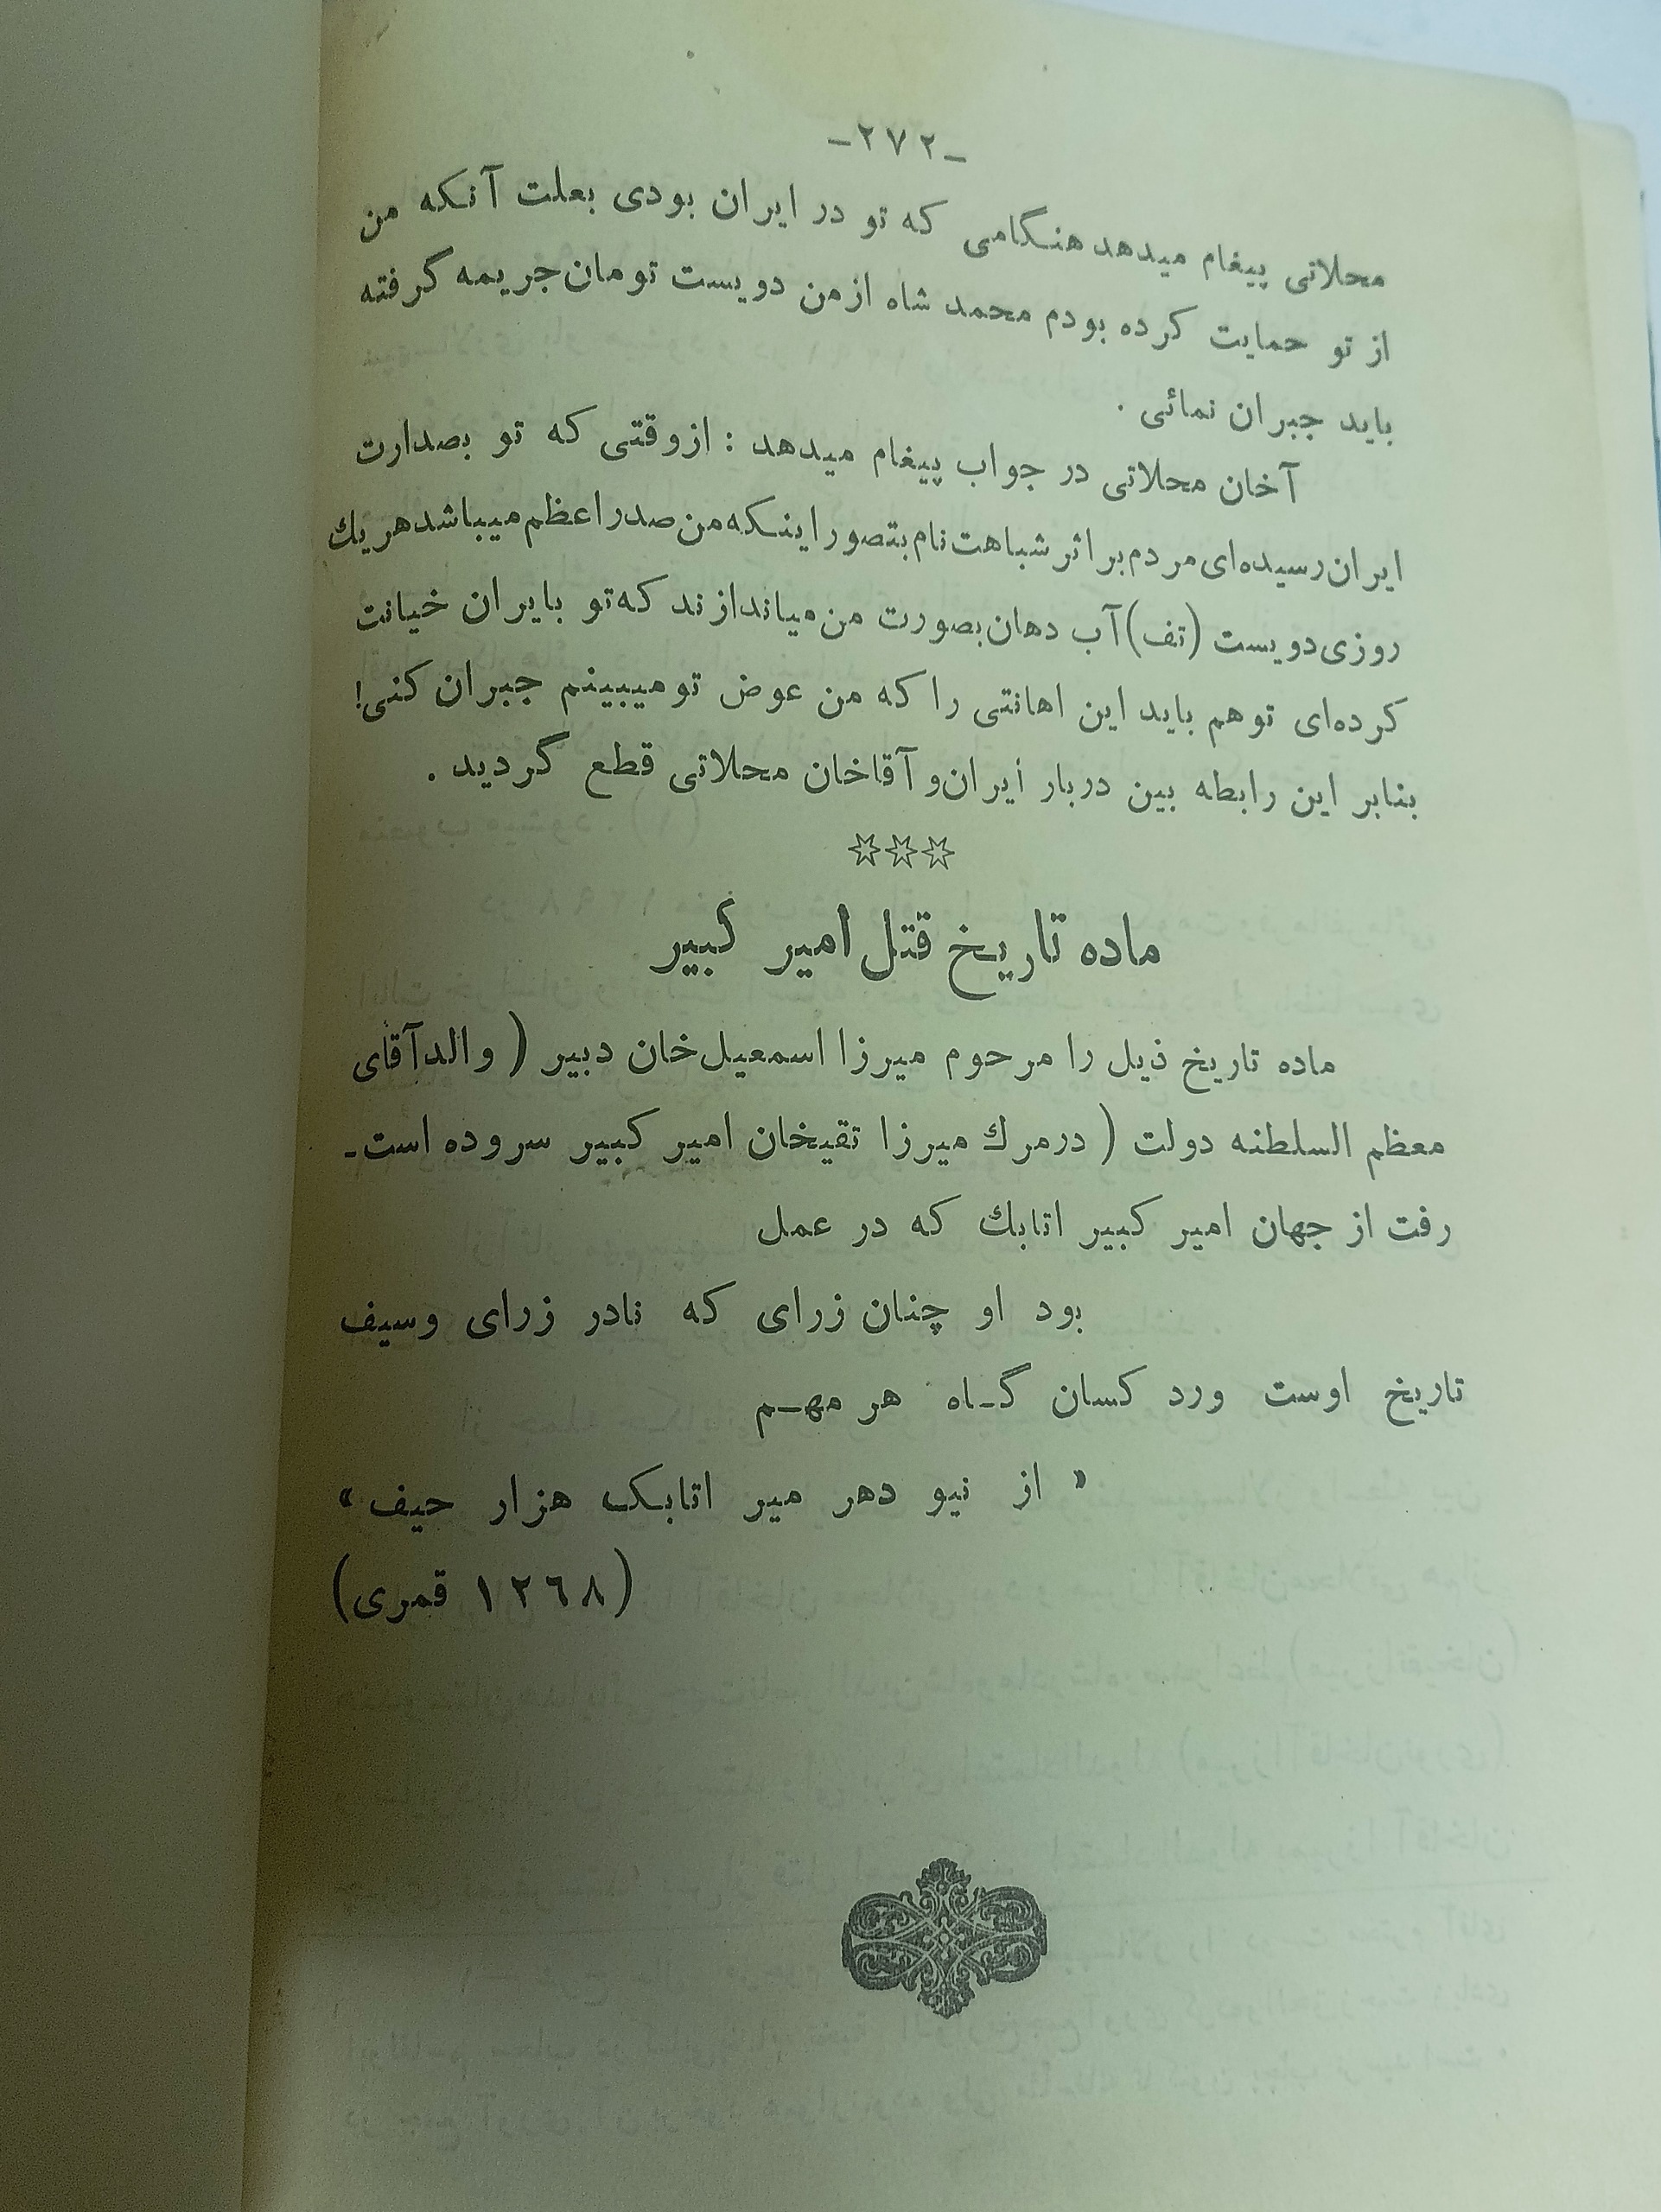 -۲۷۲-
محلاتی پیغام میدهد هنگامی که تو در ایران بودی بعلت آنکه من
از تو حمایت کرده بودم محمد شاه ازمن دویست تومان جریمه گرفته
باید جبران نمائی .
آخان محلاتی در جواب پیغام میدهد : ازوقتی که تو بصدارت
ایران رسیده‌ای مردم بر اثر شباهت نام بتصور اینکه من صدراعظم میباشد هریك
روزی دویست (تف) آب دهان بصورت من میاندازند که تو بایران خیانت
کرده‌ای توهم باید این اهانتی را که من عوض تو میبینم جبران کنی!
بنابر این رابطه بین دربار ایران و آقاخان محلاتی قطع گردید .
***
ماده تاریخ قتل امیر کبیر
ماده تاریخ ذیل را مرحوم میرزا اسمعیل خان دبیر ( والد آقای
معظم السلطنه دولت ( درمرك میرزا تقیخان امیر کبیر سروده است-
رفت از جهان امیر کبیر اتابك که در عمل
بود او چنان زرای که نادر زرای وسیف
تاریخ اوست ورد کسان گـاه هر مهـم
« از نیو دهر میر اتابک هزار حیف »
(١٢٦٨ قمری)